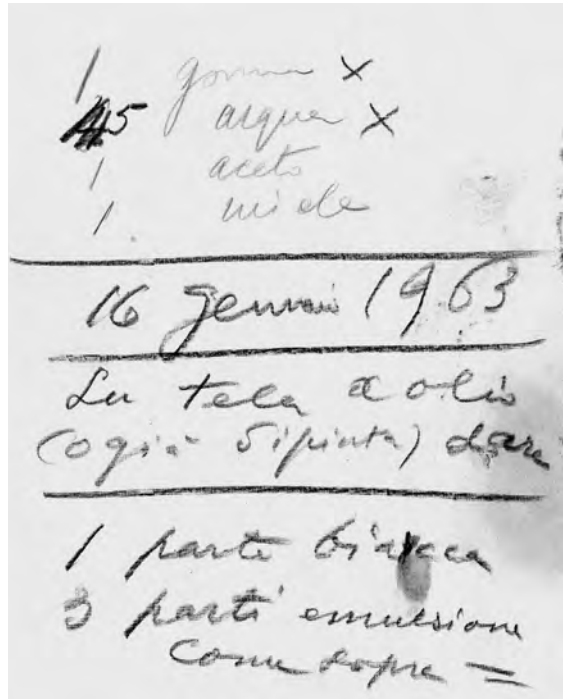 1 gomma x
45 acqua x
1 aceto
1 miele
16 gennaio 1963
Su tela a olio
(o già dipinta) dare
1 parte biacca
3 parti emulsione
come sopra =